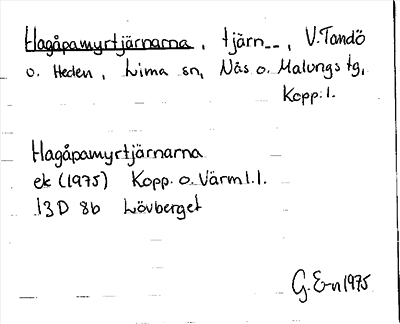 Hagåpamyrtjärnarna, tjärn--, V. Tandö
o. Heden, Lima sn, Näs o. Malungs tg,
Kopp. l.
Hagåpamyrtjärnarna
ek (1975) Kopp. o. Värml. l.
13D 8b Lövberget
G. E-n 1975